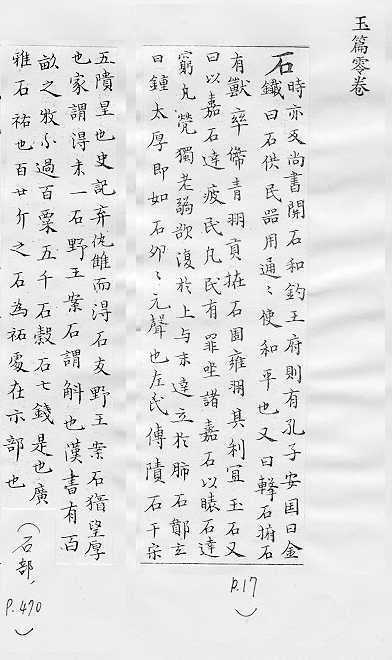 玉篇零卷
石 時亦反尚書開石和鈞王府則有孔子安囯曰金
鐵曰石供民器用通〻使和平也又曰擊石拊石
有獸卒儛青羽貢 石国雍羽其利冝玉石又
曰以嘉石達疲民凡民有罪坐諸嘉石以 石達
窮凡煢獨老弱欲復於上与未達立於肺石鄭玄
曰鍾太厚即如石夘〻元聲也左民傳隫石于宋
P.17)
五隫星也史記弃仇雠而得石友野王案石猶堅厚
也家謂得未一石野王案石謂斛也漢書有百
畝之牧不過百粟五千石穀石七錢是也廣
雅石祐也百廿斤之石為祏處在示部也
(石部, P.470)